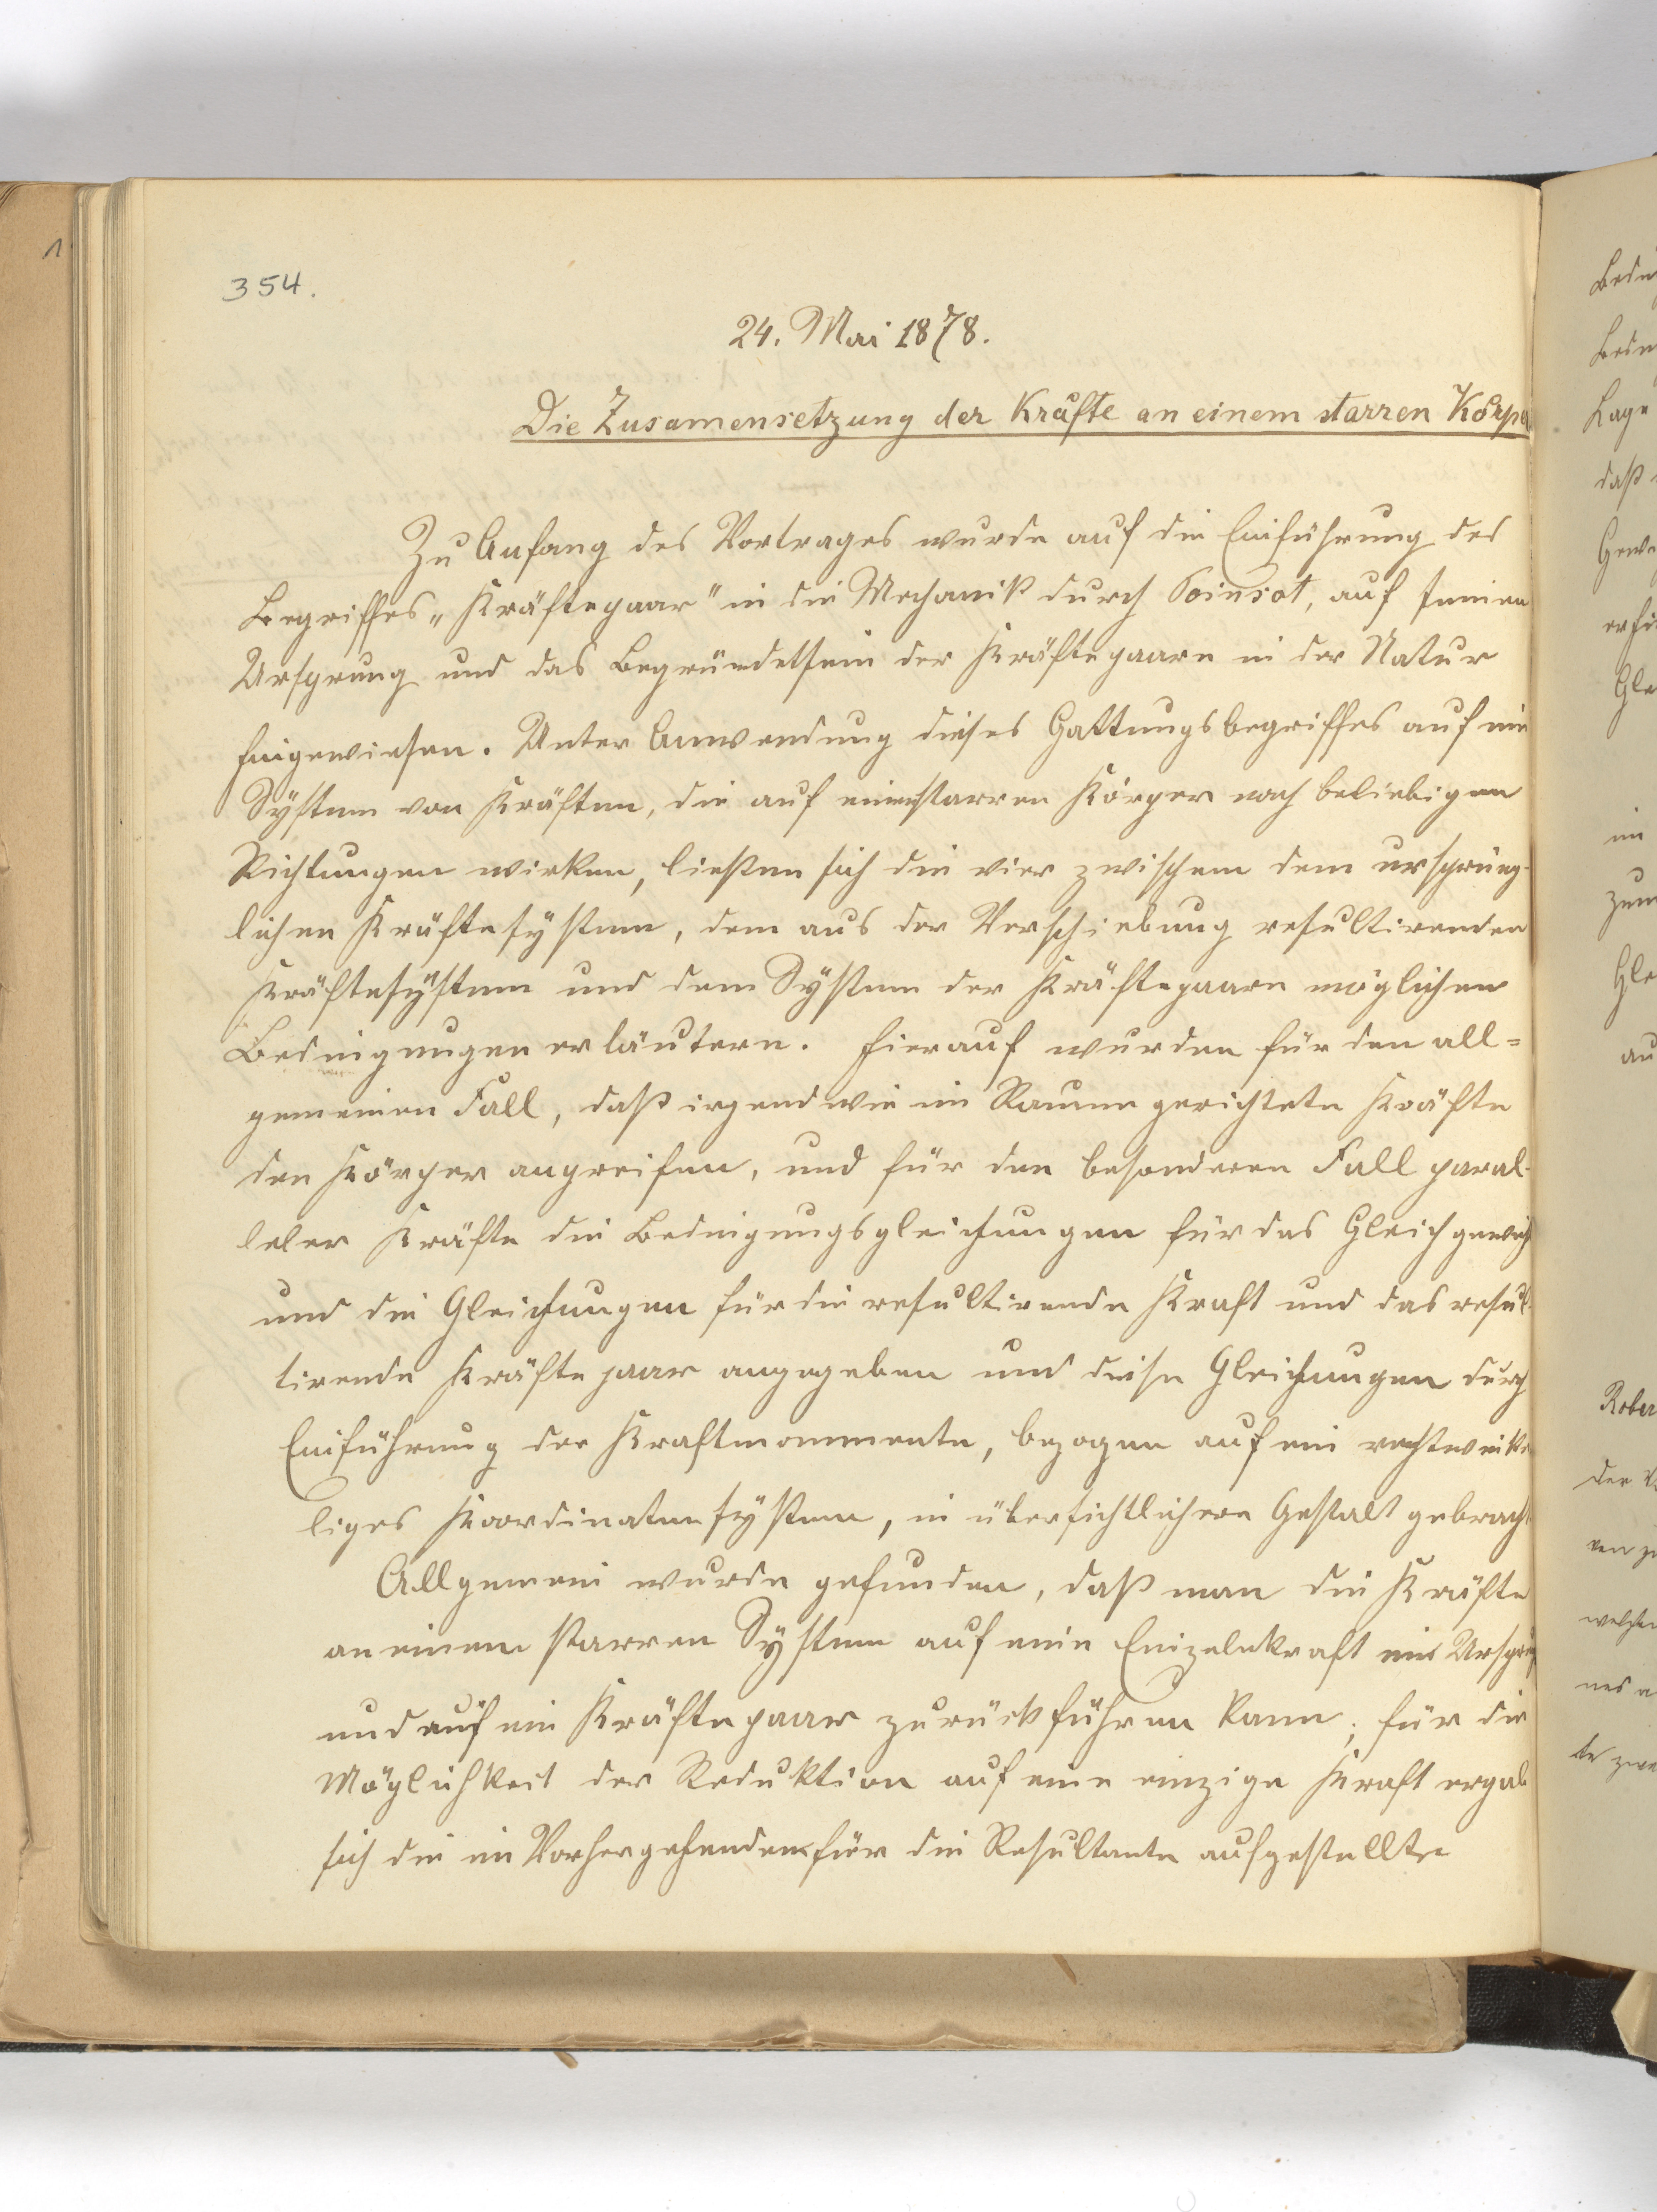 354.
24. Mai 1878.
Die Zusamensetzung der Kräfte an einem starren Körpe
Zu Anfang des Vortrages wurde auf die Einführung des
Begriffes „Kräftepaar" in die Mechanik durch Poinsot, auf seinen
Ursprung und das Begründetsein der Kräftepaare in der Natur
hingewiesen. Unter Anwendung dieses Gattungsbegriffes auf ein
System von Kräften, die auf einen starren Körper nach beliebigen
Richtungen wirken, ließen sich die vier zwischem dem ursprüng-
lichen Kräftesystem, dem aus der Verschiebung resultirenden
Kräftesystem und dem System der Kräftepaare möglichen
Bedingungen erläutern. Hierauf wurden für den all=
gemeinen Fall, daß irgendwie im Raume gerichtete Kräfte
den Körper angreifen, und für den besonderen Fall paral-
leler Kräfte die Bedingungsgleichungen für das Gleichgewich
und die Gleichungen für die resultirende Kraft und das resul-
tirende Kräftepaar angegeben und diese Gleichungen durch
Einführung der Kraftmommente, bezogen auf ein rechtwinke
liges Koordinatensystem, in übersichtlichere Gestalt gebracht
Allgemein wurde gefunden, daß man die Kräfte
an einem starren System auf eine Einzelnkraft im Ursprung
und auf ein Kräftepaar zurückführen kann; für die
Möglichkeit der Reduktion auf eine einzige Kraft ergab
sich die im Vorhergehenden für die Resultante aufgestellte
Lage
daß
Gle
im
zum
Gle
au
Rober
der
welcher
nes
te zwe